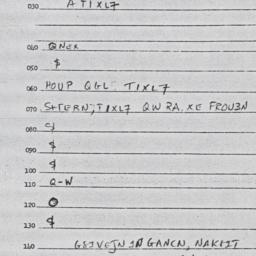 030 A TIXL7
040 QNEK
050 $
060 HOUP QGL TIXL7
070 S+TERN, TIXL7 QWRA, XE FROU3N
080
090 $
100 $
110 Q-W
120
130 $
140 GSJVEJN GANCN, NAKIJT